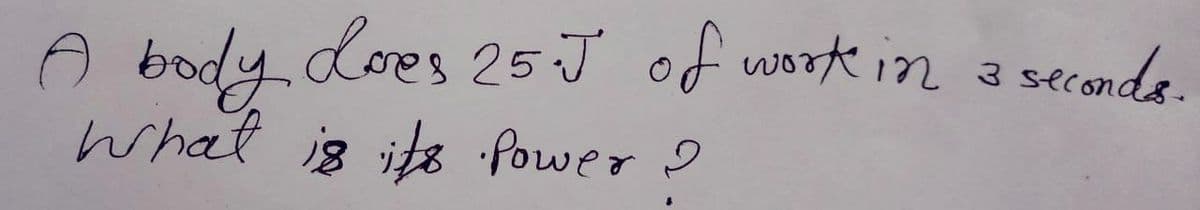 A body does 25 J of work in 3 seconds.
What is its Power ?